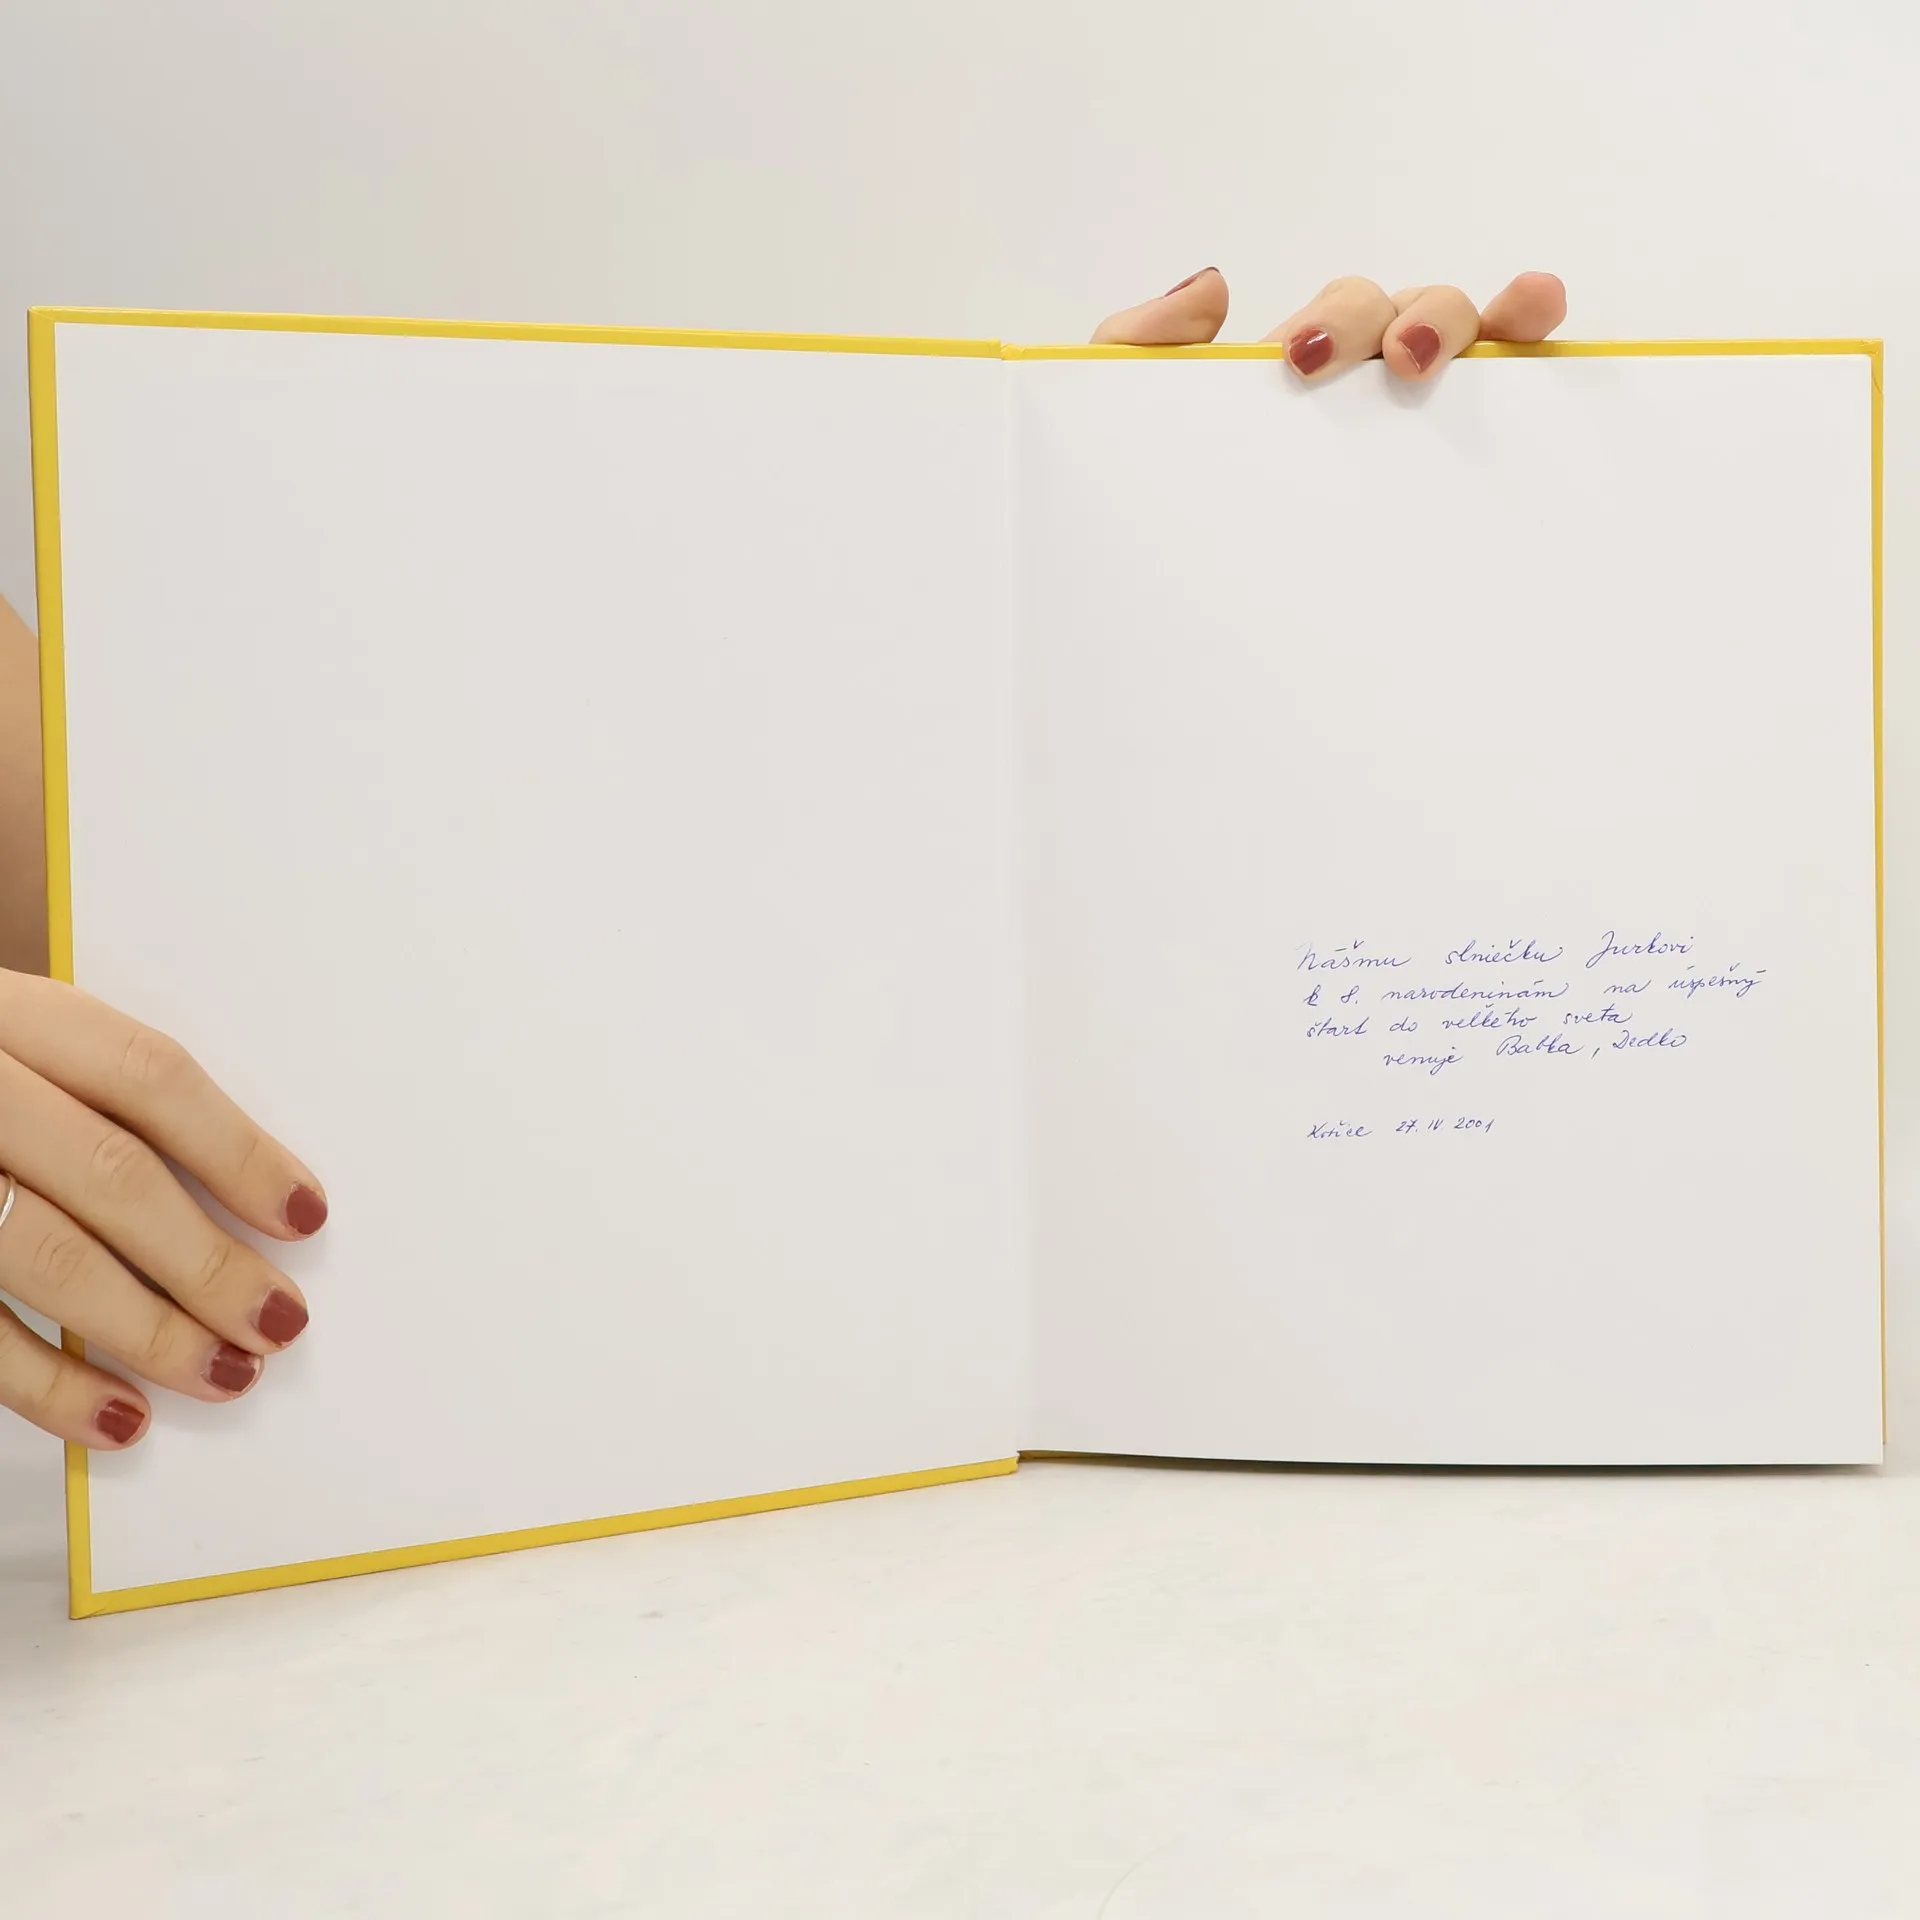 Nášmu slniečku Jurkovi
k 8. narodeninám na úspešný
štart do veľkého sveta
venuje Babka, Dedko
Košice 27. IV. 2001